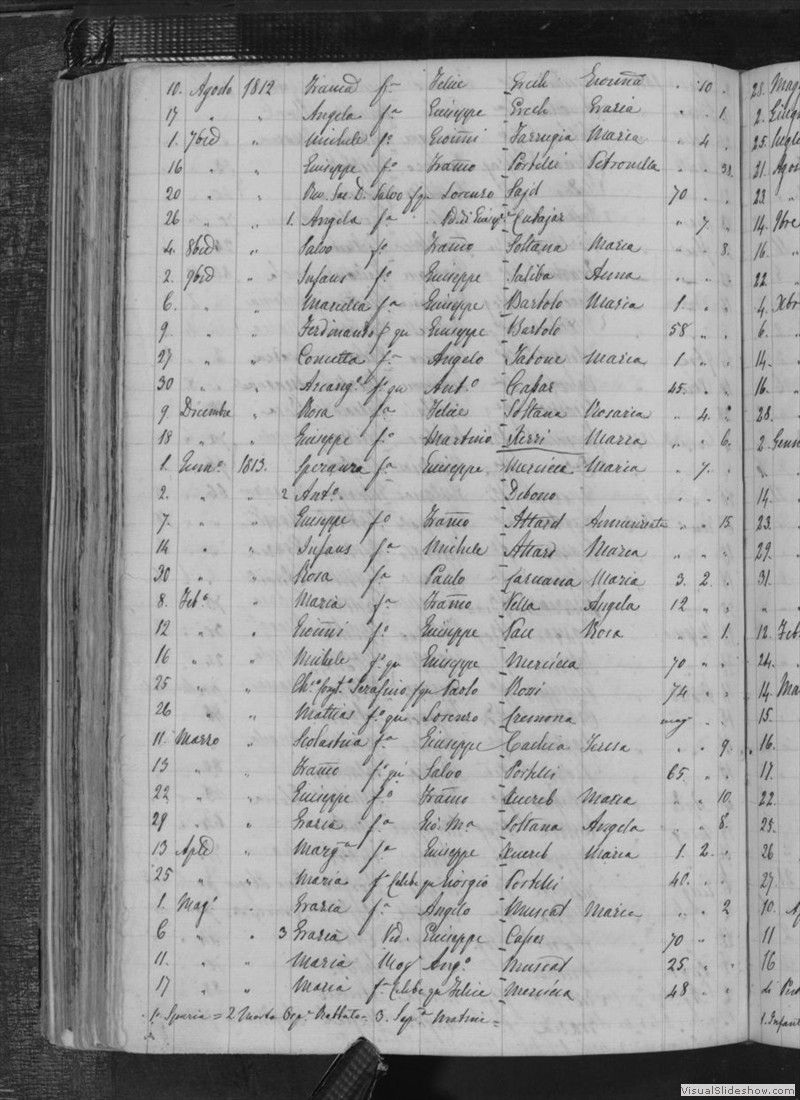 10. Agosto 1812 Franca f.a Felice Grech Giovanna " 10 "
17 " " Angela f.a Giuseppe Grech Grazia " " 1.
1. 7bre " Michele f.o Giovanni Farrugia Maria " 4 "
16 " " Giuseppe f.o Franco Portelli Petronilla " " 
20 " " Rev. Sac. D. Salvo f. qu Lorenzo Sajd 70 " "
26 " " 1. Angela f.a Cutajar " 7. "
4. 8bre " Salvo f.o Franco Soltana Maria " " 8.
2. 9bre " Infans f.o Giuseppe Saliba Anna " " "
6. " " f.a Giuseppe Bartolo Maria 1 " "
9 " " Ferdinando f. qu Giuseppe Bartolo 58 " "
27 " " Concetta f.a Angelo Tabone Maria 1 " "
30 " " Arcang.o f.o qu Ant.o Capar 45. " "
9 Dicembre " Rosa f.a Felice Soltana Rosaria " 4. "
18 " " Giuseppe f.o Martino Maria " " 6.
1. Genn.o 1813. Speranza f.a Giuseppe Mercieca Maria " 7. "
2. " " 2 Ant.o Debono " " "
7. " " Giuseppe f.o Franco Attard Annunziata " " 15
14 " " Infans f.a Michele Attard Maria " " "
30 " " Rosa f.a Paulo Caruana Maria 3. 2. "
8. Feb.o " Maria f.a Franco Vella Angela 12 " "
12 " " Giovanni f.o Giuseppe Pace Rosa " " 1.
16 " " Michele f.o qu Giuseppe Mercieca 70 " "
25 " " Serafino f. qu Paolo Rossi 74 " "
26 " " Mattias f.o qu Lorenzo Cremona mag " "
11. Marzo " Scolastica f.a Giuseppe Cachia Teresa " " 9.
13 " " Franco f.o qu Salvo Portelli 65. " "
22 " " Giuseppe f.o Franco Xuereb Maria " " 10.
29 " " Grazia f.a Gio. M.a Soltana Angela " " 8.
13 Aple " Marg.ta f.a Giuseppe Xuereb Maria 1. 2. "
25 " " Maria f.a Celibe qu Giorgio Portelli 40. " "
1. Mag.o " Grazia f.a Angelo Muscat Maria " " 2
6 " " 3 Grazia Ved. Giuseppe Capar 70 " "
11. " " Maria Mog Ang.o Muscat 25. " "
17 " " Maria f.a Celibe qu Felice Mercieca 48 " "
1. Speria = 2 Morto Rabbato = 3.
23. Mag
2. Giug
25. Luglio
21. Agos
23 "
14. 9bre
16. "
22. "
4. Xbre
6. "
14. "
16. "
28. "
2. Genn
" "
14. "
23. "
29. "
31. "
" "
12. Feb
24. "
14. Ma
15. "
16. "
17. "
22. "
25. "
26 "
27. "
10. A
11 "
16 "
1. Infant
VisualSlideshow.com